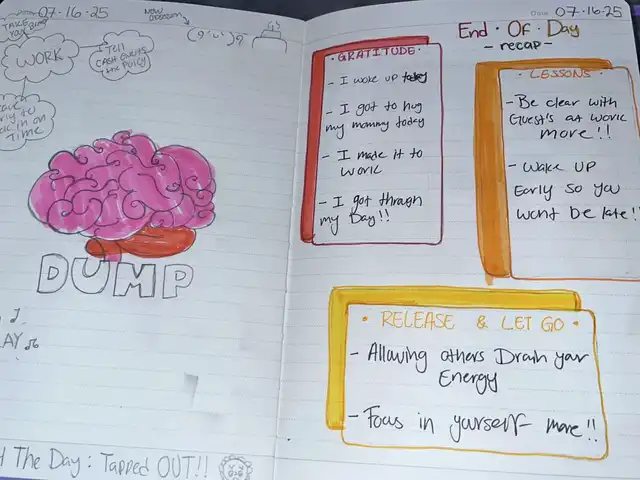 07.16.25
TAKE
WORK
NEW
OBSESSION
I Tell
CASH GUESTS
the Policy
TIME
DUMP
THE DAY: TAPPED OUT!!
Date 07.16.25
End Of Day
- recap -
·GRATITUDE·
- I woke up today
- I got to hug
my mommy today
- I made it to
work
- I got through
my Day!!
· LESSONS
- Be clear with
Guest's at work
more!!
- Wake up
Early so you
wont be late!!
· RELEASE & LET GO ·
- Allowing others Drain your
Energy
- Focus in yourself more!!